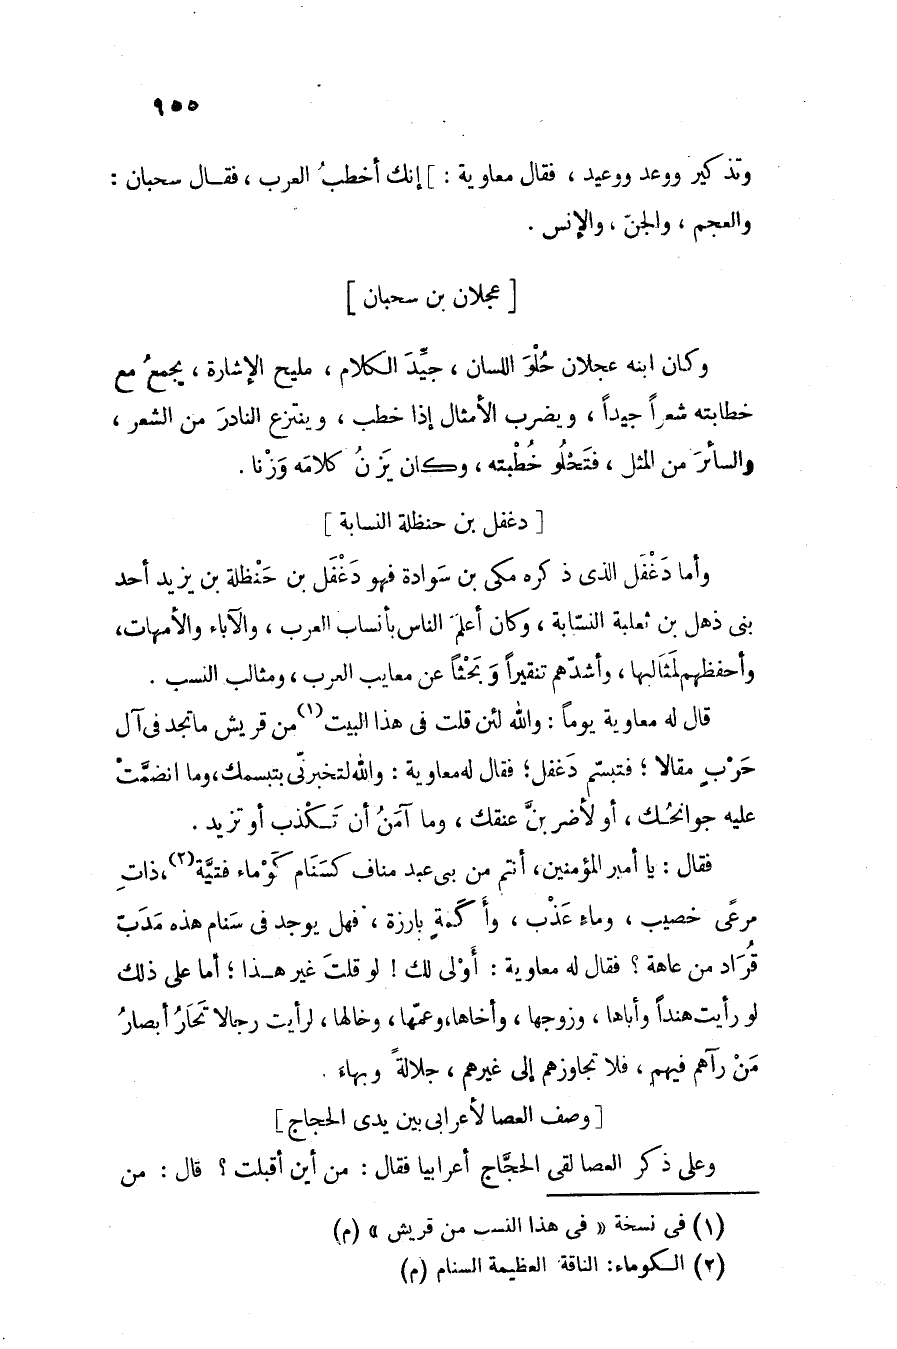 ٩٥٥
وتذكير ووعد ووعيد ، فقال معاوية : ] إنك أخطبُ العرب ، فقــال سحبان :
والعجم ، والجنّ ، والإنس .
[ عجلان بن سحبان ]
وكان ابنه عجلان حُلْوَ اللسان ، جيِّدَ الكلام ، مليح الإشارة ، يجمعُ مع
خطابته شعراً جيداً ، ويضرب الأمثال إذا خطب ، وينتزع النادرَ من الشعر ،
والسائرَ من المثل ، فتَحْلُو خُطْبته ، وكان يَزنُ كلامَه وَزْنا .
[ دغفل بن حنظلة النسابة ]
وأما دَغْفَل الذى ذكره مكى بن سَوادة فهو دَغْفَل بن حَنْظلة بن يزيد أحد
بنى ذهل بن ثعلبة النسّابة ، وكان أعلمَ الناس بأنساب العرب ، والآباء والأمهات،
وأحفظهم لمَثَالبها ، وأشدّهم تنقيراً وَبَحْثاً عن معايب العرب ، ومثالب النسب .
قال له معاوية يوماً : والله لئن قلت فى هذا البيت(١) من قريش ماتجد فى آل
حَرْبٍ مقالا ؛ فتبسّم دَغفل؛ فقال له معاوية : والله لتخبرنّى بتبسمك، وما انضمَّتْ
عليه جوانحُـك ، أو لأضربنَّ عنقك ، وما آمَنُ أن تَـكْذب أو تزيد .
فقال : يا أمير المؤمنين، أنتم من بنى عبد مناف كسَنَام كَوْماء فتيَّة(٢)،ذاتِ
مرعًى خصيب ، وماء عَذْب ، وأَكَمةٍ بارزة ، فهل يوجد فى سَنام هذه مَدَبّ
قُرَاد من عاهة ؟ فقال له معاوية : أَوْلى لك ! لو قلتَ غير هــذا ؛ أما على ذلك
لو رأيت هنداً وأباها ، وزوجها ، وأخاها،وعمّها ، وخالها ، لرأيت رجالا تَحَارُ أبصارُ
مَنْ رآهم فيهم ، فلا تجاوزهم إلى غيرهم ، جلالةً وبهاء .
[ وصف العصا لأعرابى بين يدى الحجاج ]
وعلى ذكر العصا لقى الحجَّاج أعرابيا فقال : من أين أقبلت ؟ قال : من
(١) فى نسخة « فى هذا النسب من قريش » (م)
(٢) الـكوماء: الناقة العظيمة السنام (م)